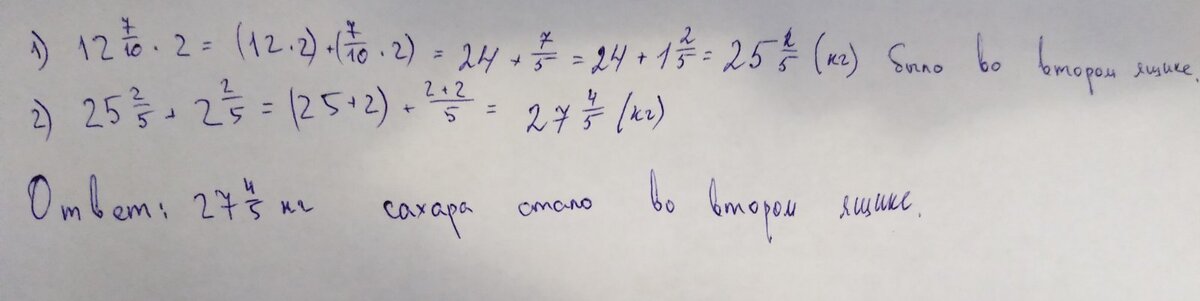 1) 12 7/10 · 2 = (12 · 2) + (7/10 · 2) = 24 + 7/5 = 24 + 1 2/5 = 25 2/5 (кг) было во втором ящике.
2) 25 2/5 + 2 2/5 = (25+2) + 2+2/5 = 27 4/5 (кг)
Ответ: 27 4/5 кг сахара стало во втором ящике.